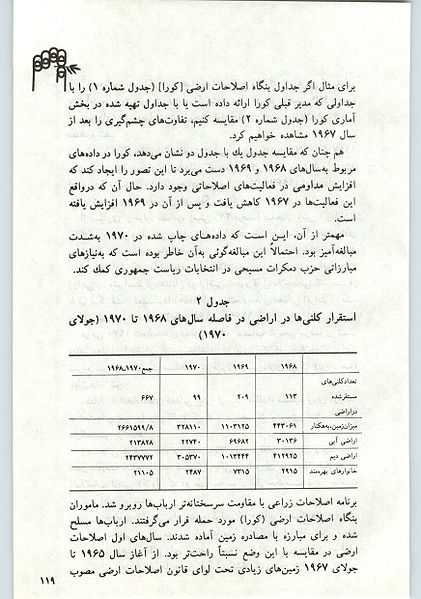 برای مثال اگر جداول بنگاه اصلاحات ارضی [کورا] (جدول شماره ۱) را با
جداولی که مدیر قبلی کورا ارائه داده است یا با جداول تهیه شده در بخش
آماری کورا (جدول شماره ۲) مقایسه کنیم، تفاوت‌های چشم‌گیری را بعد از
سال ۱۹۶۷ مشاهده خواهیم کرد.
هم چنان که مقایسه جدول یك با جدول دو نشان می‌دهد، کورا در داده‌های
مربوط به‌سال‌های ۱۹۶۸ و ۱۹۶۹ دست می‌برد تا این تصور را ایجاد کند که
افزایش مداومی در فعالیت‌های اصلاحاتی وجود دارد. حال آن که درواقع
این فعالیت‌ها در ۱۹۶۷ کاهش یافت و پس از آن در ۱۹۶۹ افزایش یافته
است.
مهمتر از آن، این‌ست که داده‌های چاپ شده در ۱۹۷۰ به‌شدت
مبالغه‌آمیز بود. احتمالاً این مبالغه‌گوئی به‌آن خاطر بوده است که به‌نیازهای
مبارزاتی حزب دمکرات مسیحی در انتخابات ریاست جمهوری کمك کند.
جدول ۲
استقرار کلنی‌ها در اراضی در فاصله سال‌های ۱۹۶۸ تا ۱۹۷۰ (جولای
۱۹۷۰)
۱۹۶۸ ۱۹۶۹ ۱۹۷۰ جمع ۱۹۷۰ـ۱۹۶۸
تعدادکلنی‌های
مستقرشده ۱۱۳ ۲۰۹ ۹۹ ۶۶۷
دراراضی
میزان‌زمین‌،به‌هکتار ۴۴۳۰۶۱ ۱۱۰۳۱۲۵ ۳۲۸۱۱۰ ۲۶۶۱۵۹۹/۸
اراضی آبی ۳۰۱۳۶ ۶۹۶۸۲ ۲۲۷۴۰ ۲۱۳۸۲۸
اراضی دیم ۴۱۲۹۲۵ ۱۰۱۳۴۴۴ ۳۰۵۳۷۰ ۲۴۳۷۷۷۲
خانوارهای بهره‌مند ۲۹۱۵ ۷۳۱۵ ۲۴۸۷ ۲۱۱۰۵
برنامه اصلاحات زراعی با مقاومت سرسختانه‌تر ارباب‌ها روبرو شد. ماموران
بنگاه اصلاحات ارضی (کورا) مورد حمله قرار می‌گرفتند. ارباب‌ها مسلح
شده و برای مبارزه با مصادره زمین آماده شدند. سال‌های اول اصلاحات
ارضی در مقایسه با این وضع نسبتاً راحت‌تر بود. از آغاز سال ۱۹۶۵ تا
جولای ۱۹۶۷ زمین‌های زیادی تحت لوای قانون اصلاحات ارضی مصوب
۱۱۹